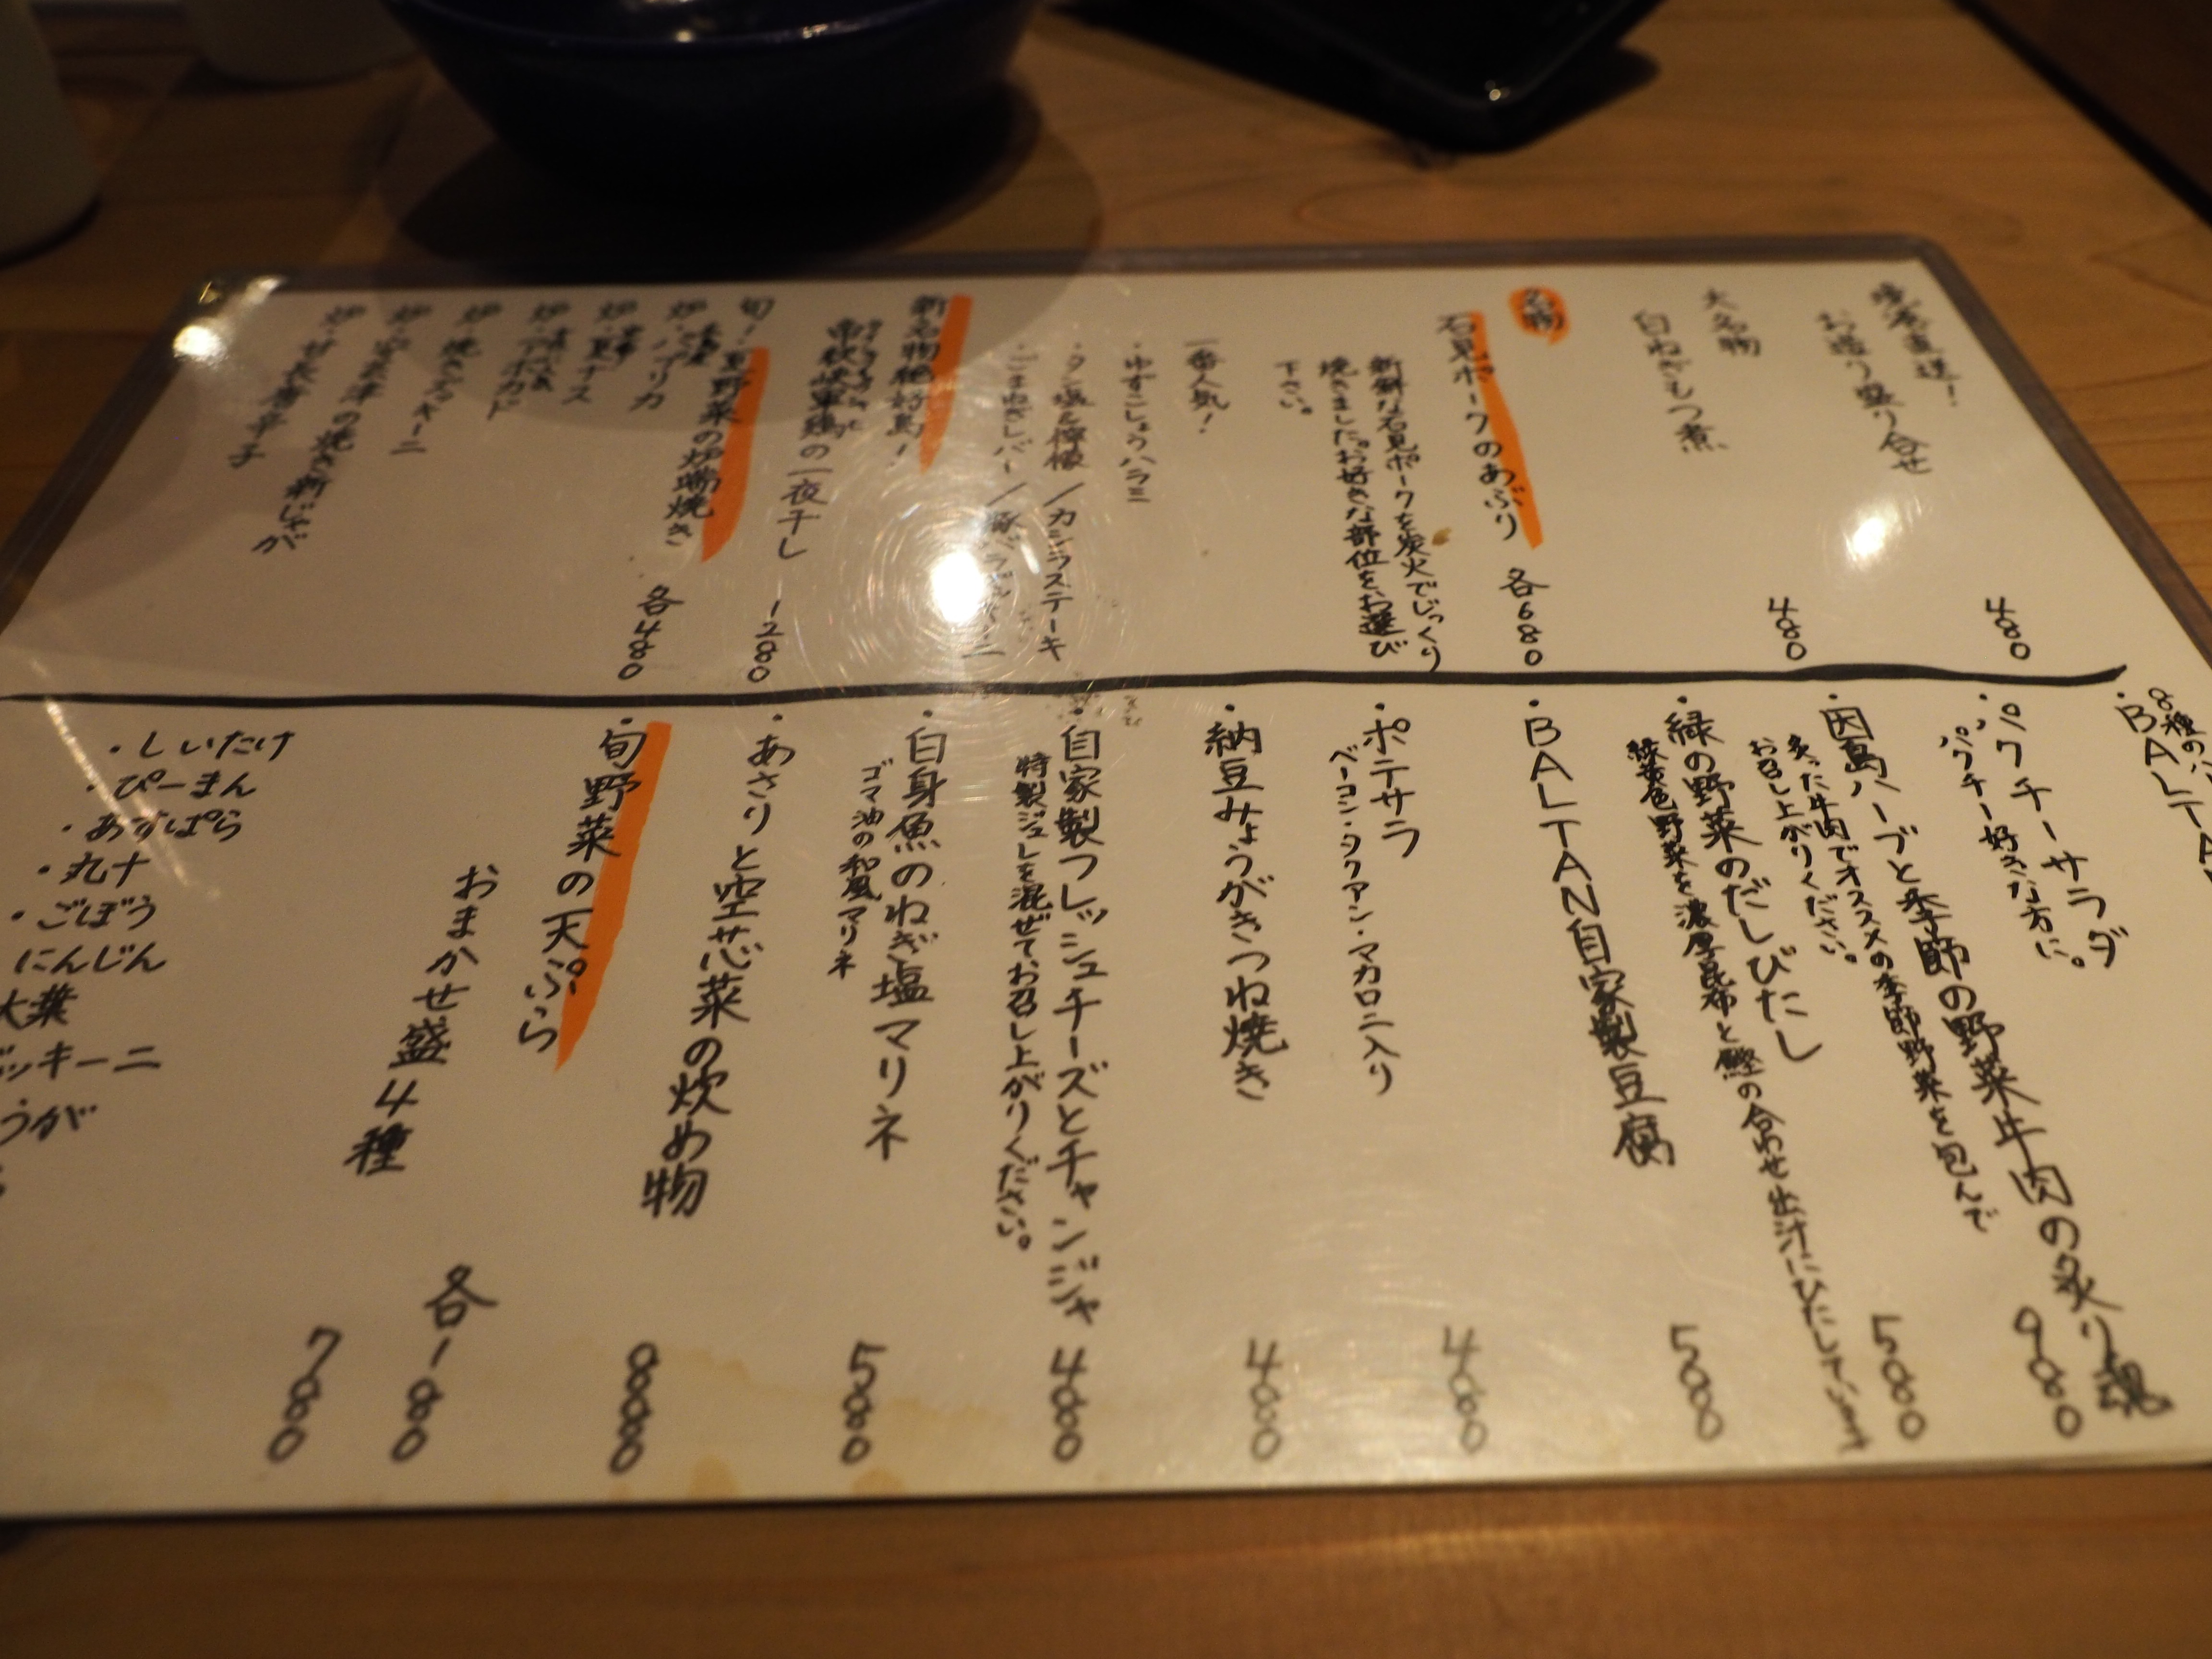 直送!
お造り盛り合せ
480
大名物
白ねぎもつ煮
480
名物
石見ポークのあぶり 各680
新鮮な石見ポークを炭火でじっくり
焼きました。お好きな部位をお選び
下さい。
一番人気!
・ゆずこしょうハラミ
・タン塩&檸檬/カシラステーキ
・ごまねぎレバー/
新名物
の一夜干し 1280
旬!夏野菜の炉端焼き 各480
パプリカ
ナス
アボカド
焼きズッキーニ
の焼き新じゃが
唐辛子
8種の
・BALTA
・パクチーサラダ
パクチー好きな方に。
980
・因島ハーブと季節の野菜牛肉の炙り
炙った牛肉でオススメの季節野菜を包んで
お召し上がりください。
580
・緑の野菜のだしびたし
緑黄色野菜を濃厚昆布と鰹の合わせ出汁にひたしています
580
・BALTAN自家製豆腐
480
・ポテサラ
ベーコン・タクアン・マカロニ入り
480
・納豆みょうがきつね焼き
480
・自家製フレッシュチーズとチャンジャ
特製ジュレを混ぜてお召し上がりください。
580
・白身魚のねぎ塩マリネ
ゴマ油の和風マリネ
880
・あさりと空芯菜の炊め物
・旬野菜の天ぷら
各180
おまかせ盛4種
780
・しいたけ
・ぴーまん
・あすぱら
・丸十
・ごぼう
にんじん
大葉
ズッキーニ
うが